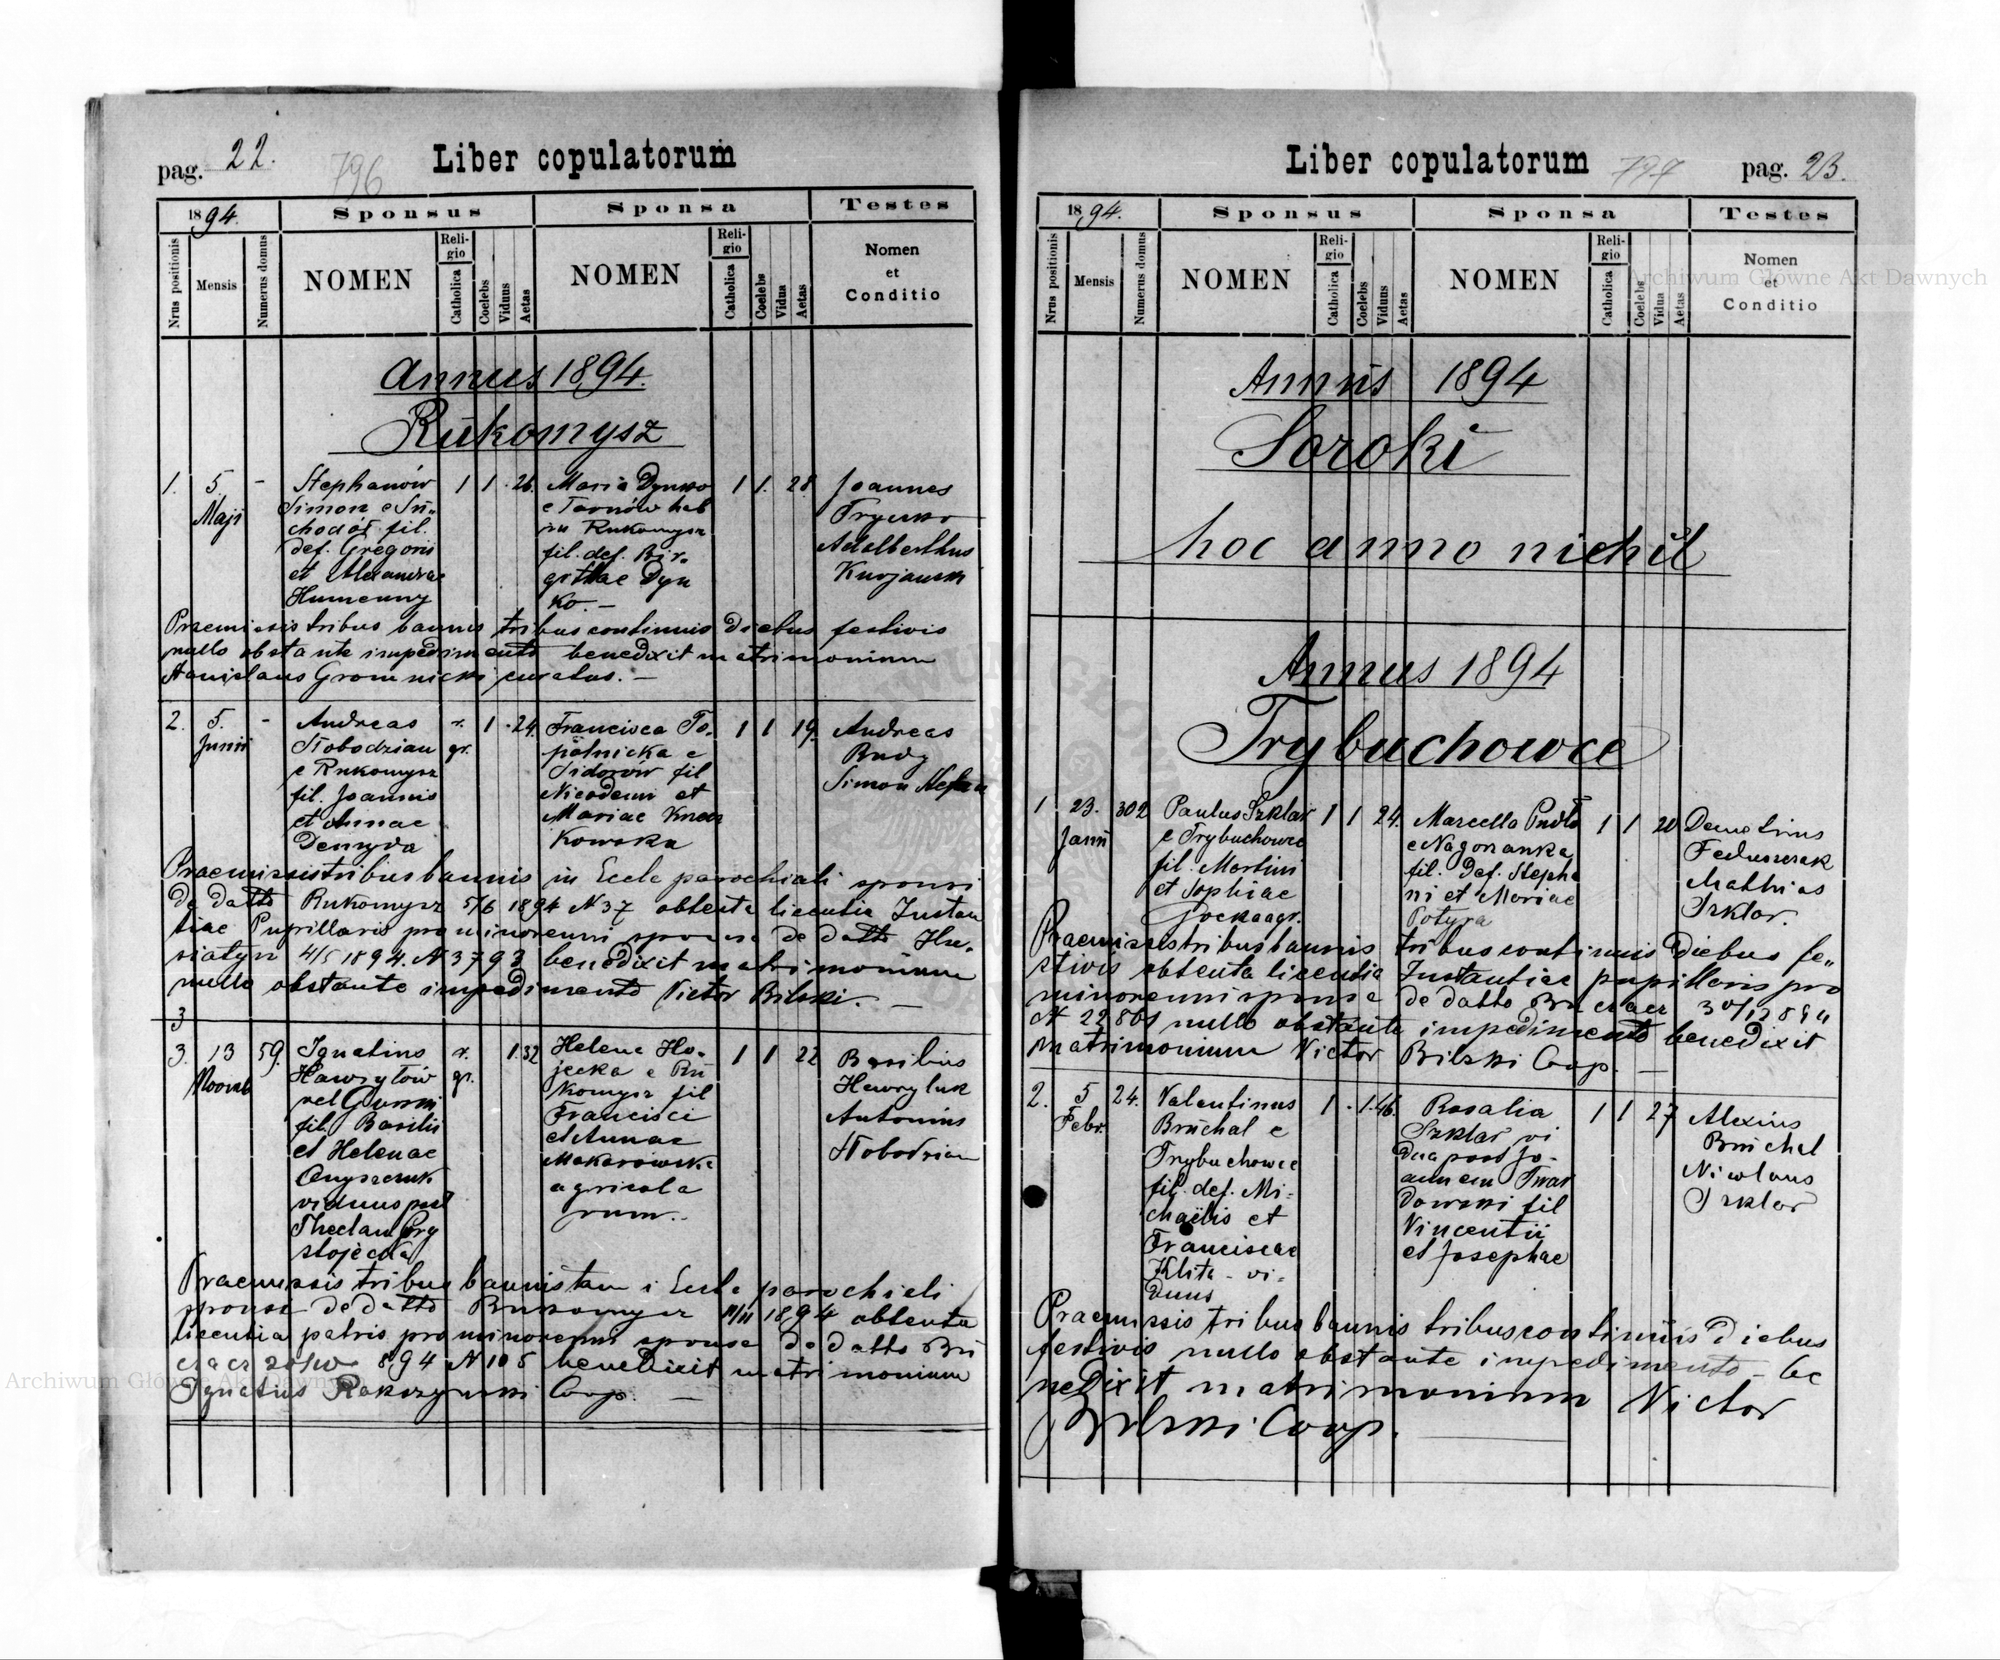 pag. 22.
796
Liber copulatorum
1894.
Sponsus
Sponsa
Testes
Nrus positionis
Mensis
Numerus domus
NOMEN
Religio
Catholica
Coelebs
Viduus
Aetas
NOMEN
Religio
Catholica
Coelebs
Vidua
Aetas
Nomen
et
Conditio
Annus 1894.
Rukomysz
1.
5.
Maji
-
Stephanów
Simon e Su„
chodół fil.
def. Gregorii
et Alexandrae
Humenny
1 1 . 26.
Maria Dynko
e Tarnów hab
in Rukomysz
fil. def. Bir„
gittae Dyn
ko. —
1 1. 28
Joannes
Adalbertus
Praemissis tribus bannis tribus continuis diebus festivis
nullo obstante impedimento benedixit matrimonium
Stanislaus Gromnicki curatus. —
2.
5.
Junii
-
Andreas
Słobodzian
e Rukomysz
fil. Joannis
et Annae
Demyda
r.
gr.
1 . 24.
Francisca To„
polnicka e
Sidorów fil
Nicodemi et
Mariae
kowska
1 1 19.
Andreas
Rudy
Simon Stefan
Praemissis tribus bannis in Eccle parochiali sponsi
de datto Rukomysz 5/6 1894 N 37 obtenta licentia Instan
tiae Pupillaris pro minorenni sponsa de datto Hu„
siatyn 4/5 1894. N 3793 benedixit matrimonium
nullo obstante impedimento Victor Bilski. —
3
3.
13
Novemb
59.
Ignatius
Hawryłów
vel
fil. Basilii
et Helenae
Onyszczuk
viduus post
Theclam Gry
r.
gr.
1. 32
Helena Ho„
jecka e Ru
komysz fil
Francisci
et Annae
Makarowska
agricola
rum..
1 1 22
Basilius
Hawryluk
Antonius
Słobodzian
Praemissis tribus bannis tam i Eccle parochiali
sponsa de datto Rukomysz 11/11 1894 obtenta
licentia patris pro minorenni sponsa de datto Bu
czacz 894 N 105 benedixit matrimonium
Ignatius Coop. —
pag. 23.
797
Liber copulatorum
1894.
Sponsus
Sponsa
Testes
Nrus positionis
Mensis
Numerus domus
NOMEN
Religio
Catholica
Coelebs
Viduus
Aetas
NOMEN
Religio
Catholica
Coelebs
Vidua
Aetas
Nomen
et
Conditio
Annus 1894
Soroki
hoc anno nichil
Annus 1894
Trybuchowce
1
23.
Janii
302
Paulus Szklar
e Trybuchowce
fil. Martini
et Sophiae
1 1 24.
Marcella Pudło
e Nagorzanka
fil. Def. Stepha
ni et Mariae
Potyra
1 1 20
Demetrius
Feduszczak
Mathias
Szklar.
Praemissis tribus bannis tribus continuis diebus fe„
stivis obtenta licentia Instantiae pupillaris pro
minorenni sponsa de datto Buczacz
N 22861 nullo obstante impedimento benedixit
matrimonium Victor Bilski Coop. —
2.
5
Febr.
24.
Valentinus
Bruchal e
Trybuchowce
fil. def. Mi-
chaëlis et
Franciscae
Klita - vi-
duus
1 . 1. 46.
Rosalia
Szklar vi
dua post Jo-
annem Twar
dowski fil
Vincentii
et Josephae
1 1 27
Alexius
Bruchal
Nicolaus
Szklar
Praemissis tribus bannis tribus continuis diebus
festivis nullo obstante impedimento - be
nedixit matrimonium Victor
Bilski Coop.
Archiwum Główne Akt Dawnych
Archiwum Główne Akt Dawnych